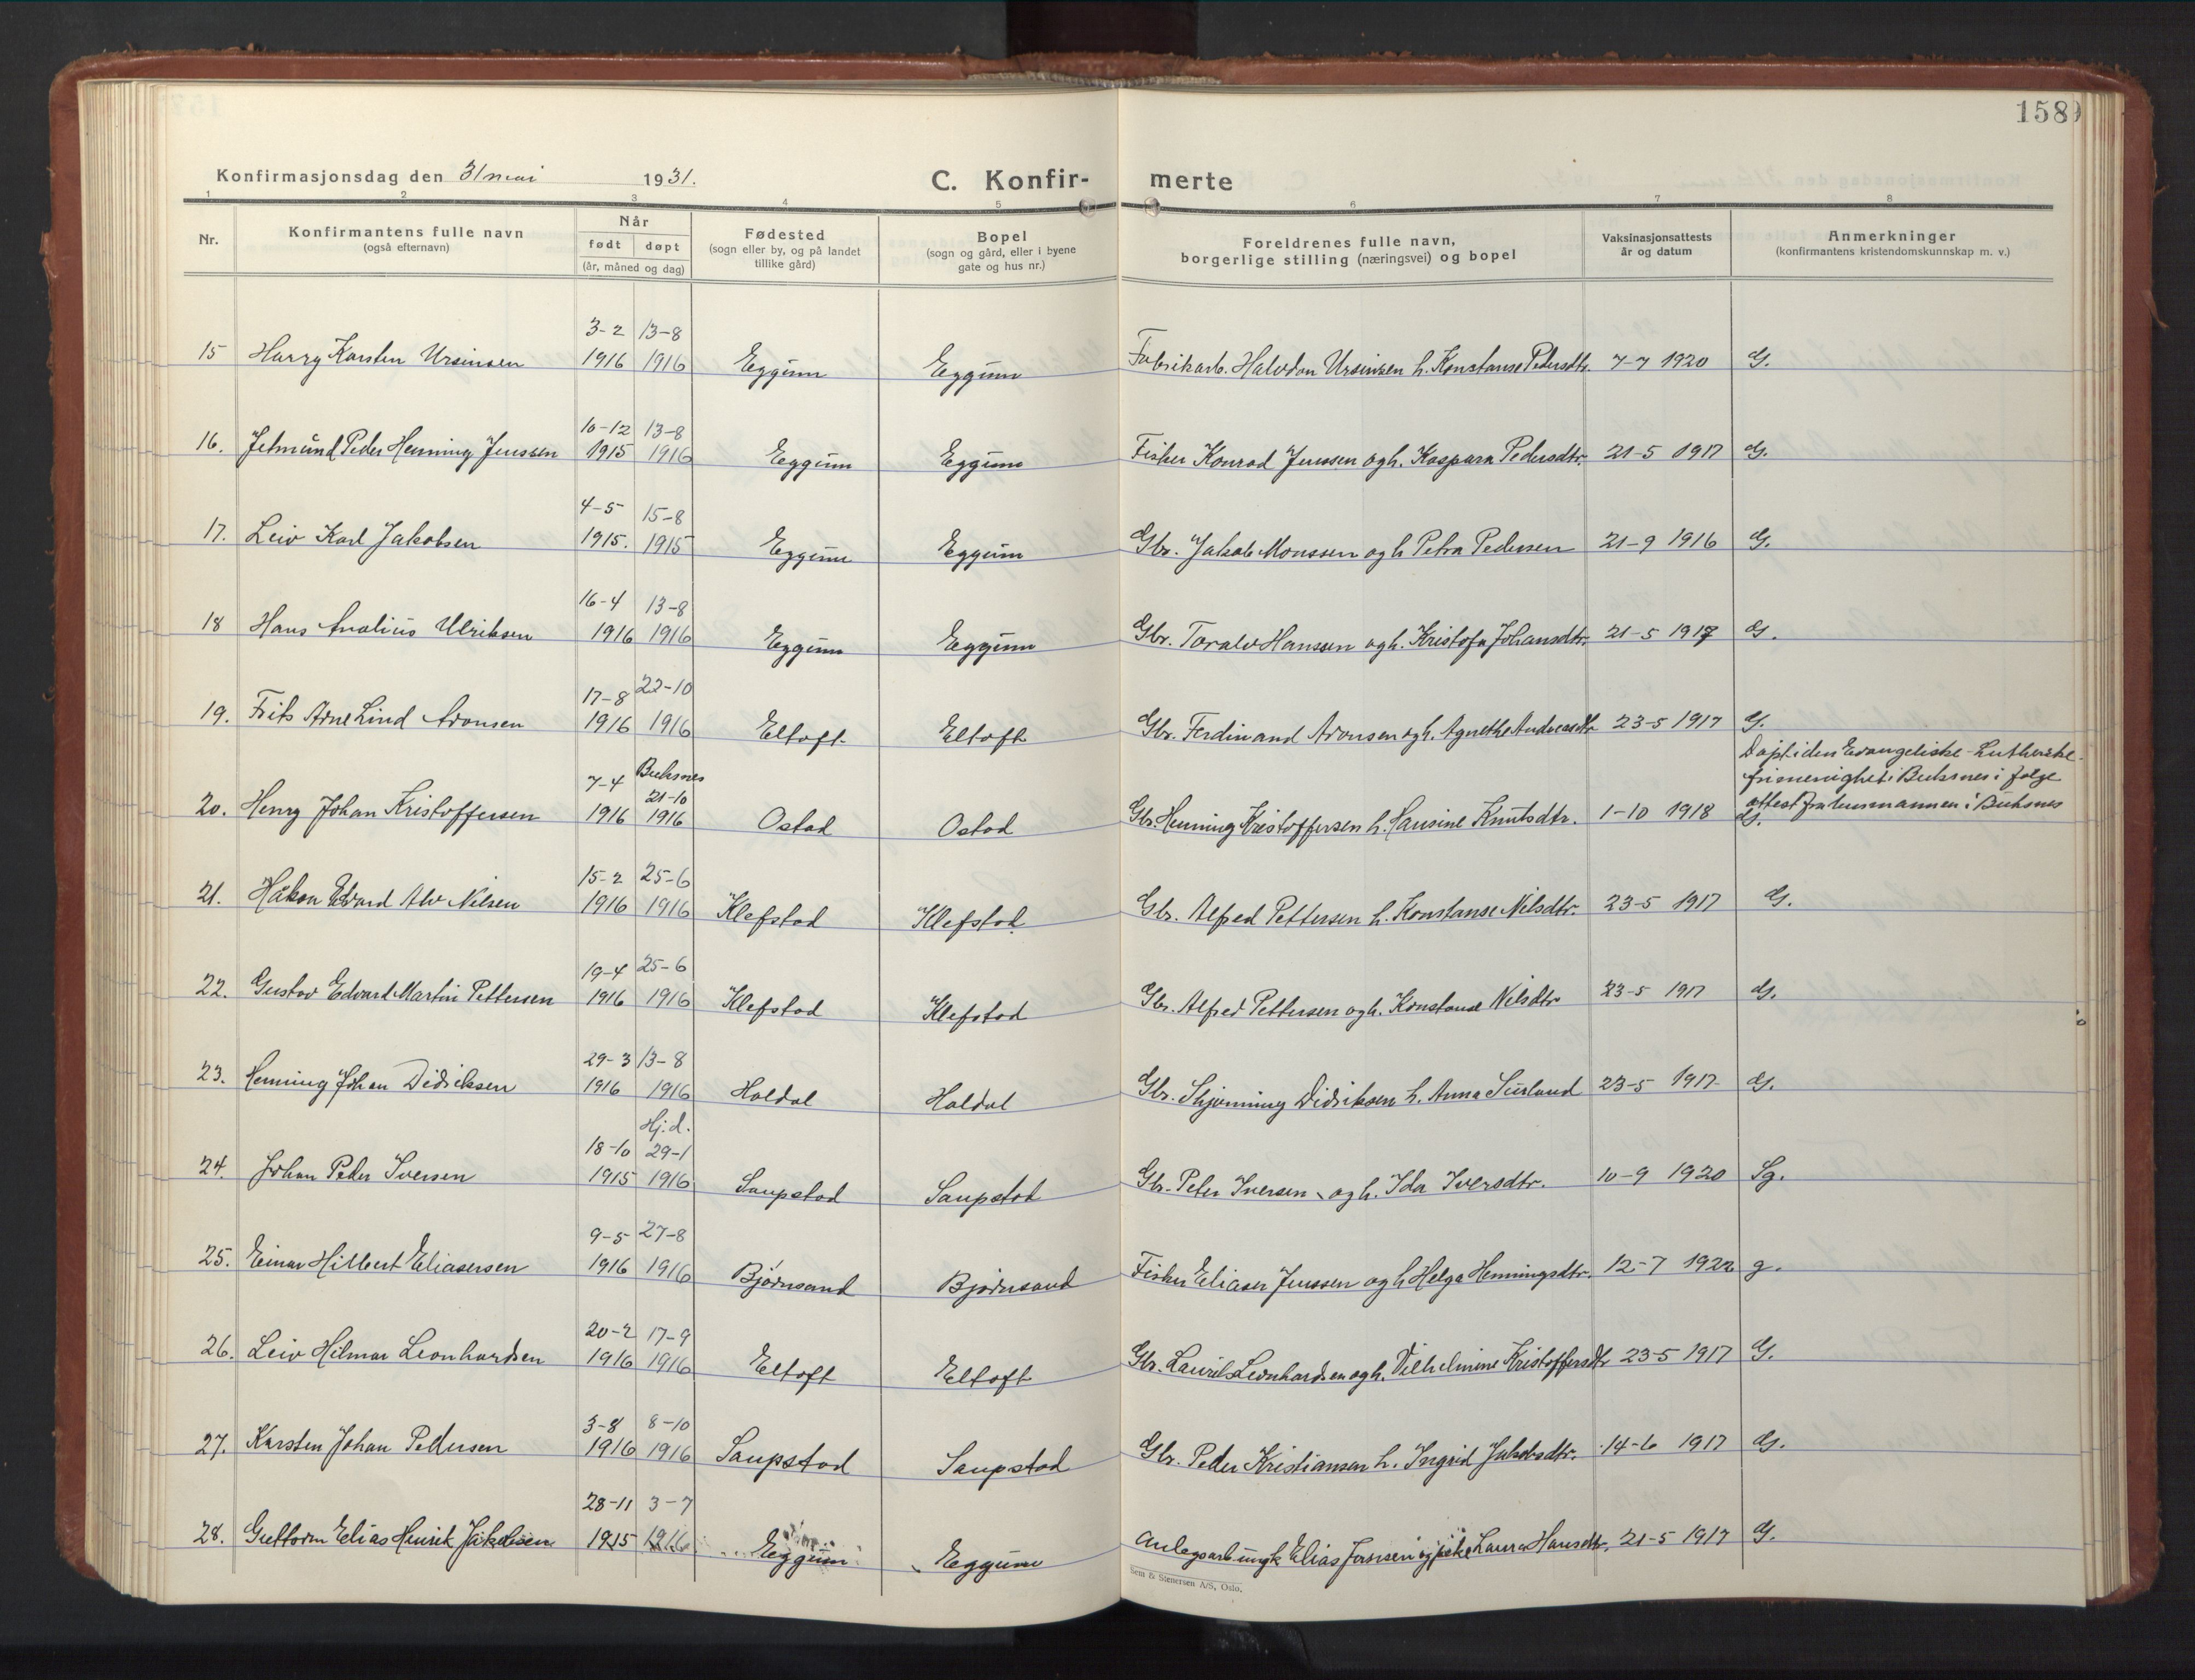 158
Konfirmasjonsdag den 31 mai 1931.
C. Konfir- merte
1 2 3 4 5 6 7 8
Nr.
Konfirmantens fulle navn
(også efternavn)
Når
født døpt
(år, måned og dag)
Fødested
(sogn eller by, og på landet
tillike gård)
Bopel
(sogn og gård, eller i byene
gate og hus nr.)
Foreldrenes fulle navn,
borgerlige stilling (næringsvei) og bopel
Vaksinasjonsattests
år og datum
Anmerkninger
(konfirmantens kristendomskunnskap m. v.)
3-2 13-8
15 Harry Karsten Ursinsen 1916 1916 Eggum Eggum Fabrikarb. Halvdan Ursinsen h. Konstanse Pedersdtr. 7-7 1920 G.
10-12 13-8
16. Jetmund Peder Henning Jenssen 1915 1916 Eggum Eggum Fisker Konrad Jenssen og h. Kaspara Pedersdtr. 21-5 1917 G.
4-5 15-8
17. Leiv Karl Jakobsen 1915. 1915 Eggum Eggum Gbr. Jakob Monssen og h Petra Pedersen 21-9 1916 G.
16-4 13-8
18 Hans Analius Ulriksen 1916 1916 Eggum Eggum Gbr. Toralv Hanssen og h. Kristofa Johansdtr. 21-5 1917 G.
17-8 22-10
19. Frits Arne Lind Aronsen 1916 1916 Eltoft Eltoft Gbr. Ferdinand Aronsen og h. Agnethe Andreasdtr 23-5 1917 G.
Døpt i den Evangeliske-Lutherske
frimenighet i Buksnes i følge
attest fra lensmannen i Buksnes
7-4 Buksnes
21-10
20. Henry Johan Kristoffersen 1916 1916 Ostad Ostad Gbr. Henning Kristoffersen h. Hansine Knutsdtr. 1-10 1918 G.
15-2 25-6
21. Håkon Edvard Alv Nilsen 1916 1916 Klefstad Klefstad Gbr. Alfred Pettersen h. Konstanse Nilsdtr. 23-5 1917 G.
19-4 25-6
22. Gustav Edvard Martin Pettersen 1916 1916 Klefstad Klefstad Gbr. Alfred Pettersen og h. Konstanse Nilsdtr 23-5 1917 G.
29-3 13-8
23. Henning Johan Didriksen 1916 1916 Holdal Holdal Gbr. Skjønning Didriksen h. Anna Surland 23-5 1917 G.
Hj.d.
18-10 29-1
24. Johan Peder Iversen 1915 1916 Saupstad Saupstad Gbr. Peter Iversen og h. Ida Iversdtr. 10-9 1920 Sg.
9-5 27-8
25. Einar Hilbert Eliasersen 1916 1916 Bjørnsand Bjørnsand Fisker Eliaser Jenssen og h Helga Henningsdtr. 12-7 1922 g.
20-2 17-9
26. Leiv Hilmar Leonhardsen 1916 1916 Eltoft Eltoft Gbr. Laurits Leonhardsen og h. Vilhelmine Kristoffersdtr 23-5 1917 G.
3-8 8-10
27. Karsten Johan Pedersen 1916 1916 Saupstad Saupstad Gbr. Peder Kristiansen h. Ingrid Jakobsdtr. 14-6 1917 G.
28-11 3-7
28. Guttorm Elias Henrik Jakobsen 1915 1916 Eggum Eggum Anlegsarb. ungk. Elias og pike Laura Hansdtr. 21-5 1917 G.
Sem & Stenersen A/S, Oslo.